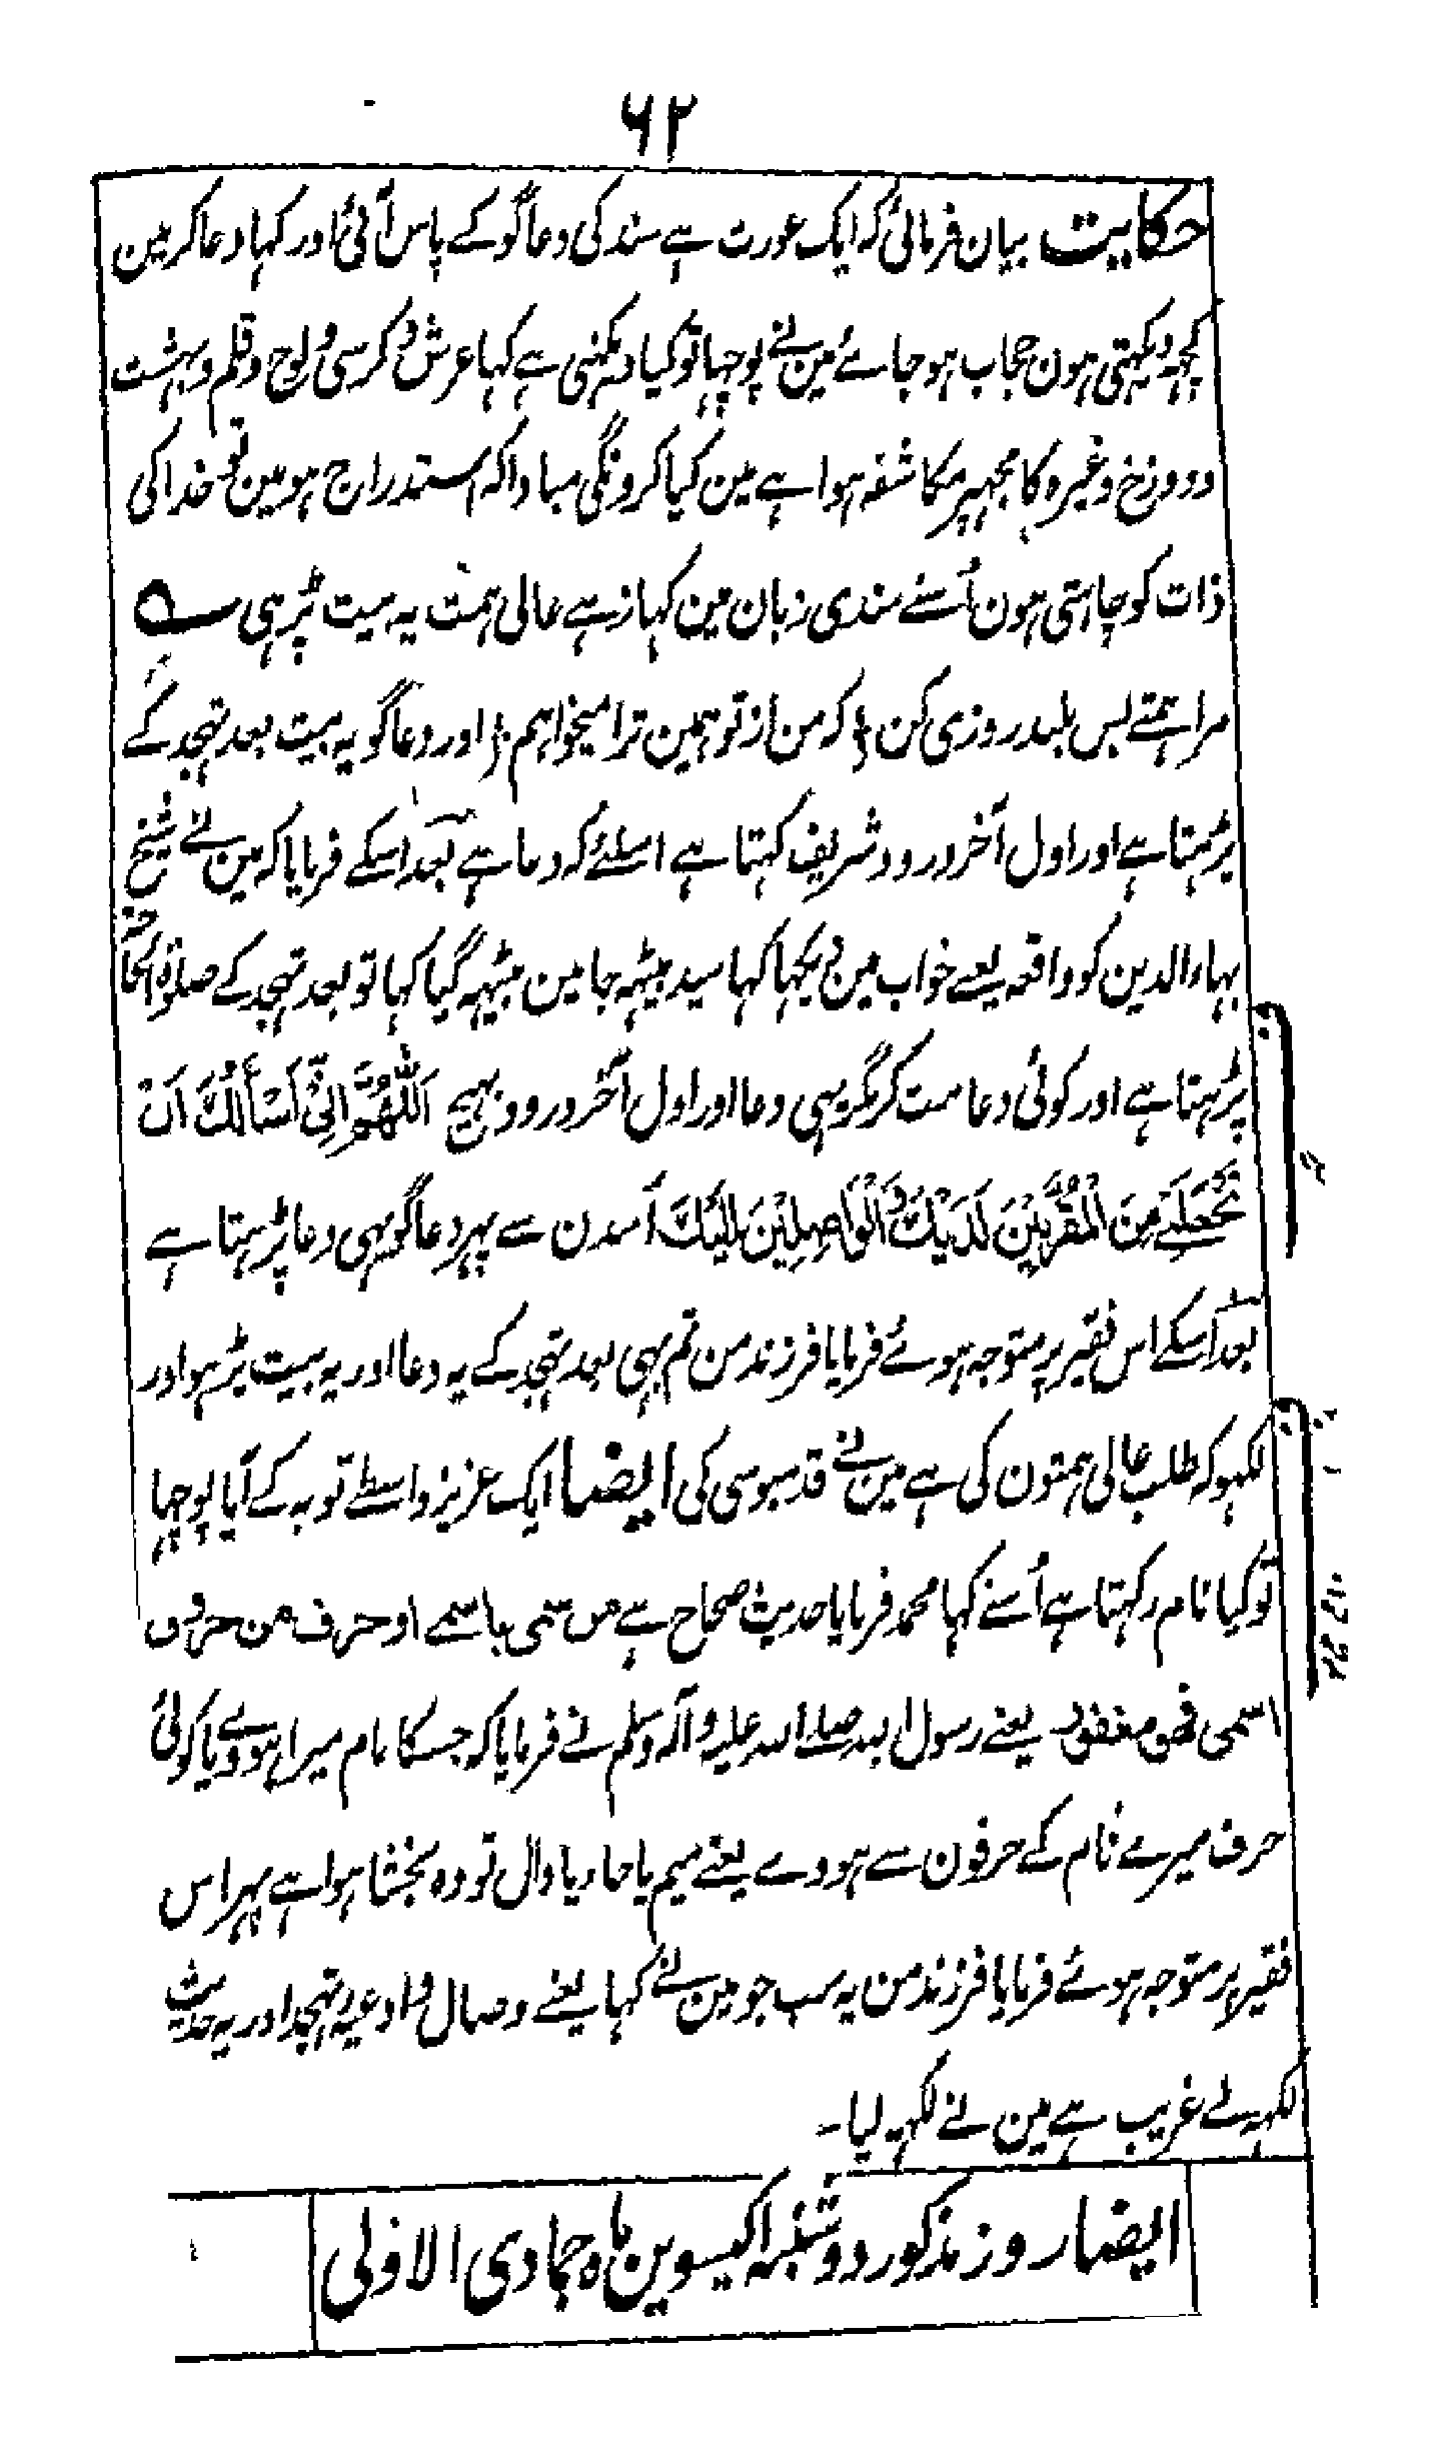 ۶۲
حکایت بیان فرمائی کہ ایک عورت ہے سند کی دعاگو کے پاس آئی اور کہا دعا کر مین
کچہہ دیکہتی ہون حجاب ہو جائے مین نے پوچہا تو کیا دیکہتی ہے کہا عرش و کرسی و لوح و قلم و بہشت
و دوزخ وغیرہ کا مجہپر مکاشفہ ہوا ہے مین کیا کرونگی مبادا کہ استدراج ہو مین تو خدا کی
ذات کو چاہتی ہون اُسنے سندی زبان مین کہا زہے عالی ہمت یہ بیت پڑہی ؎
مرا ہمتے بس بلند روزی کن ؛ کہ من از تو ہمین ترا میخواہم ؛ اور دعاگو یہ بیت بعد تہجد کے
پڑہتا ہے اور اول آخر درود شریف کہتا ہے اسلئے کہ دعا ہے بعد اُسکے فرمایا کہ مین نے شیخ
بہاء الدین کو واقعہ یعنے خواب مین دیکہا کہا سید بیٹہہ جا مین بیٹہہ گیا کہا تو بعد تہجد کے صلوٰۃ الحاجۃ
پڑہتا ہے اور کوئی دعا مت کر مگر وہی دعا اور اول آخر درود بہیج اَللّٰهُمَّ اِنِّىْ اَسْأَلُكَ اَنْ
تَجْعَلَنِىْ مِنَ الْمُقَرَّبِيْنَ لَدَيْكَ وَالْوَاصِلِيْنَ اِلَيْكَ اُسدن سے پہر دعاگو یہی دعا پڑہتا ہے
بعد اُسکے اس فقیر پر متوجہ ہوئے فرمایا فرزند من تم بہی بعد تہجد کے یہ دعا اور یہ بیت پڑہو اور
لکہو کہ طلب عالی ہمتون کی ہے مین نے قدمبوسی کی ایضا ایک عزیز واسطے توبہ کے آیا پوچہا
تو کیا نام رکہتا ہے اُسنے کہا محمد فرمایا حدیث صحاح ہے من سمی باسمے او حرف من حروف
اسمی فهو مغفور یعنے رسول اللہ صلے اللہ علیہ وآلہ وسلم نے فرمایا کہ جسکا نام میرا ہووے یا کوئی
حرف میرے نام کے حرفون سے ہووے یعنے میم یا حا یا دال تو وہ بخشا ہوا ہے پہر اس
فقیر پر متوجہ ہوئے فرمایا فرزند من یہ سب جو مین نے کہا یعنے وصال و ادعیہ تہجد اور یہ حدیث
لکہہ لے غریب ہے مین نے لکہہ لیا۔
ایضا روز مذکور دوشنبہ اکیسوین ماہ جمادی الاولی